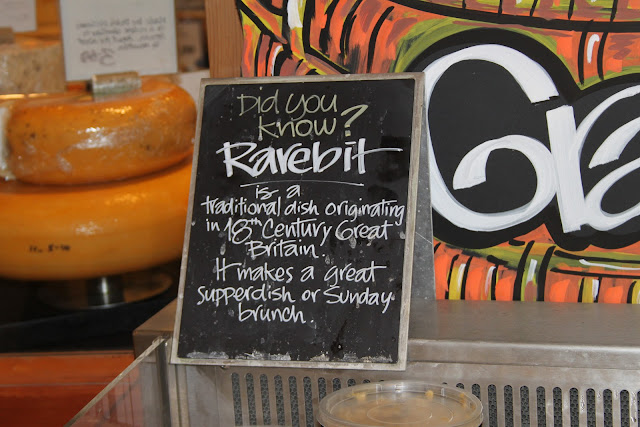 Did you
know?
Rarebit
is a
traditional dish originating
in 18th Century Great
Britain.
It makes a great
supperdish or Sunday
brunch.
Gra